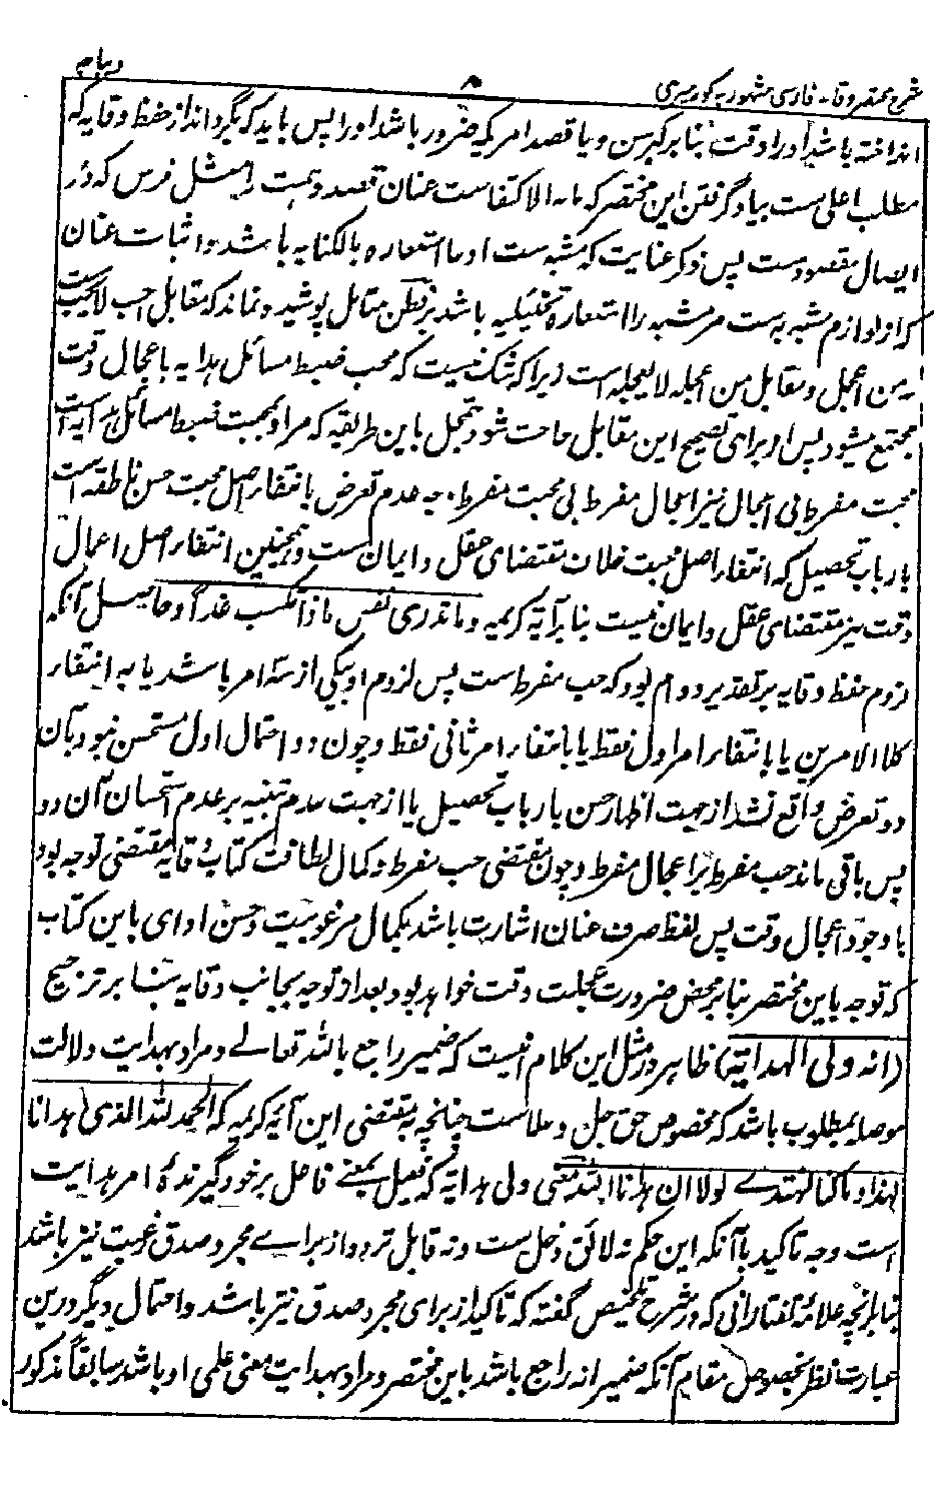 دیباچه
۸
شرح مختصر وقایه فارسی مشهور به کورمیری
انداخته باشد او را وقت بنا بر کبر سن و یا قصد امریکه ضرور باشد او را پس باید که بگرداند از حفظ وقایه که
مطلب اعلی ست بیاد گرفتن این مختصر که ما به الاکتفاست عنان قصد و همت را مثل فرس که در
ایصال مقصودست پس ذکر عنایت که مشبه ست اوما استعاره بالکنایه باشد و اثبات عنان
که از لوازم مشبه به ست مر مشبه را استعاره تخییلیه باشد بر فطن متامل پوشیده نماند که مقابل احب لا یحب ست
من اعجل و مقابل من اعجله لا یعجله است زیرا که شک نیست که محب ضبط مسائل هدایه باعجال وقت
مجتمع میشود پس او برای تصحیح این مقابل حاجت شود بتمحل باین طریقه که مراد بمحبت ضبط مسائل هدایه است
محبت مفرط بی اعجال نیز اعجال مفرط بی محبت مفرط وجه عدم تعرض بانتفاء اصل محبت حسن ناطقه است
بارباب تحصیل که انتفاء اصل محبت خلاف مقتضای عقل و ایمان ست و همچنین انتفاء اصل اعمال
وقت نیز مقتضای عقل و ایمان نیست بنا بر آیه کریمه و ما تدری نفس ماذا تکسب غدا و حاصل آنکه
لزوم حفظ وقایه بر تقدیر دوام بود که حب مفرط ست پس لزوم او بیکی از سه امر باشد یا به انتفاء
کلا الامرین یا بانتفاء امر اول فقط یا بانتفاء امر ثانی فقط و چون دو احتمال اول مستحسن نبود بآن
دو تعرض واقع نشد از جهت اظهار حسن بارباب تحصیل یا از جهت عدم تنبیه بر عدم استحسان آن دو
پس باقی ماند حب مفرط بر اعجال مفرط و چون مقتضی حب مفرط و کمال لطافت کتاب وقایه مقتضی توجه بود
با وجود اعجال وقت پس لفظ صرف عنان اشارت باشد بکمال مرغوبیت و حسن ادای باین کتاب
که توجه باین مختصر بنا بر محض ضرورت عجلت وقت خواهد بود بعد از توجه بجانب وقایه بنا بر ترجیح
(انه ولی الهدایة) ظاهر در مثل این کلام آنیست که ضمیر راجع باللہ تعالے و مراد بهدایت دلالت
موصله بمطلوب باشد که مخصوص حق جل و علاست چنانچه بمقتضی این آیه کریمه که الحمد لله الذی هدانا
لهذا و ما کنا لنهتدے لولا ان هدانا اللہ معنی ولی هدایه که فعیل بمعنے فاعل بر خود گیرنده امر هدایت
است وجه تاکید با آنکه این حکم نه لائق دخل ست و نه قابل تردد از براے مجرد صدق رغبت نیز باشد
بنا بر آنچه علامه تفتازانی که در شرح تلخیص گفته که تاکید از برای مجرد صدق نیز باشد و احتمال دیگر درین
عبارت نظر بخصوصل مقام آنکه ضمیر انه راجع باشد باین مختصر و مراد بهدایت معنی علمی او باشد سابقا مذکور